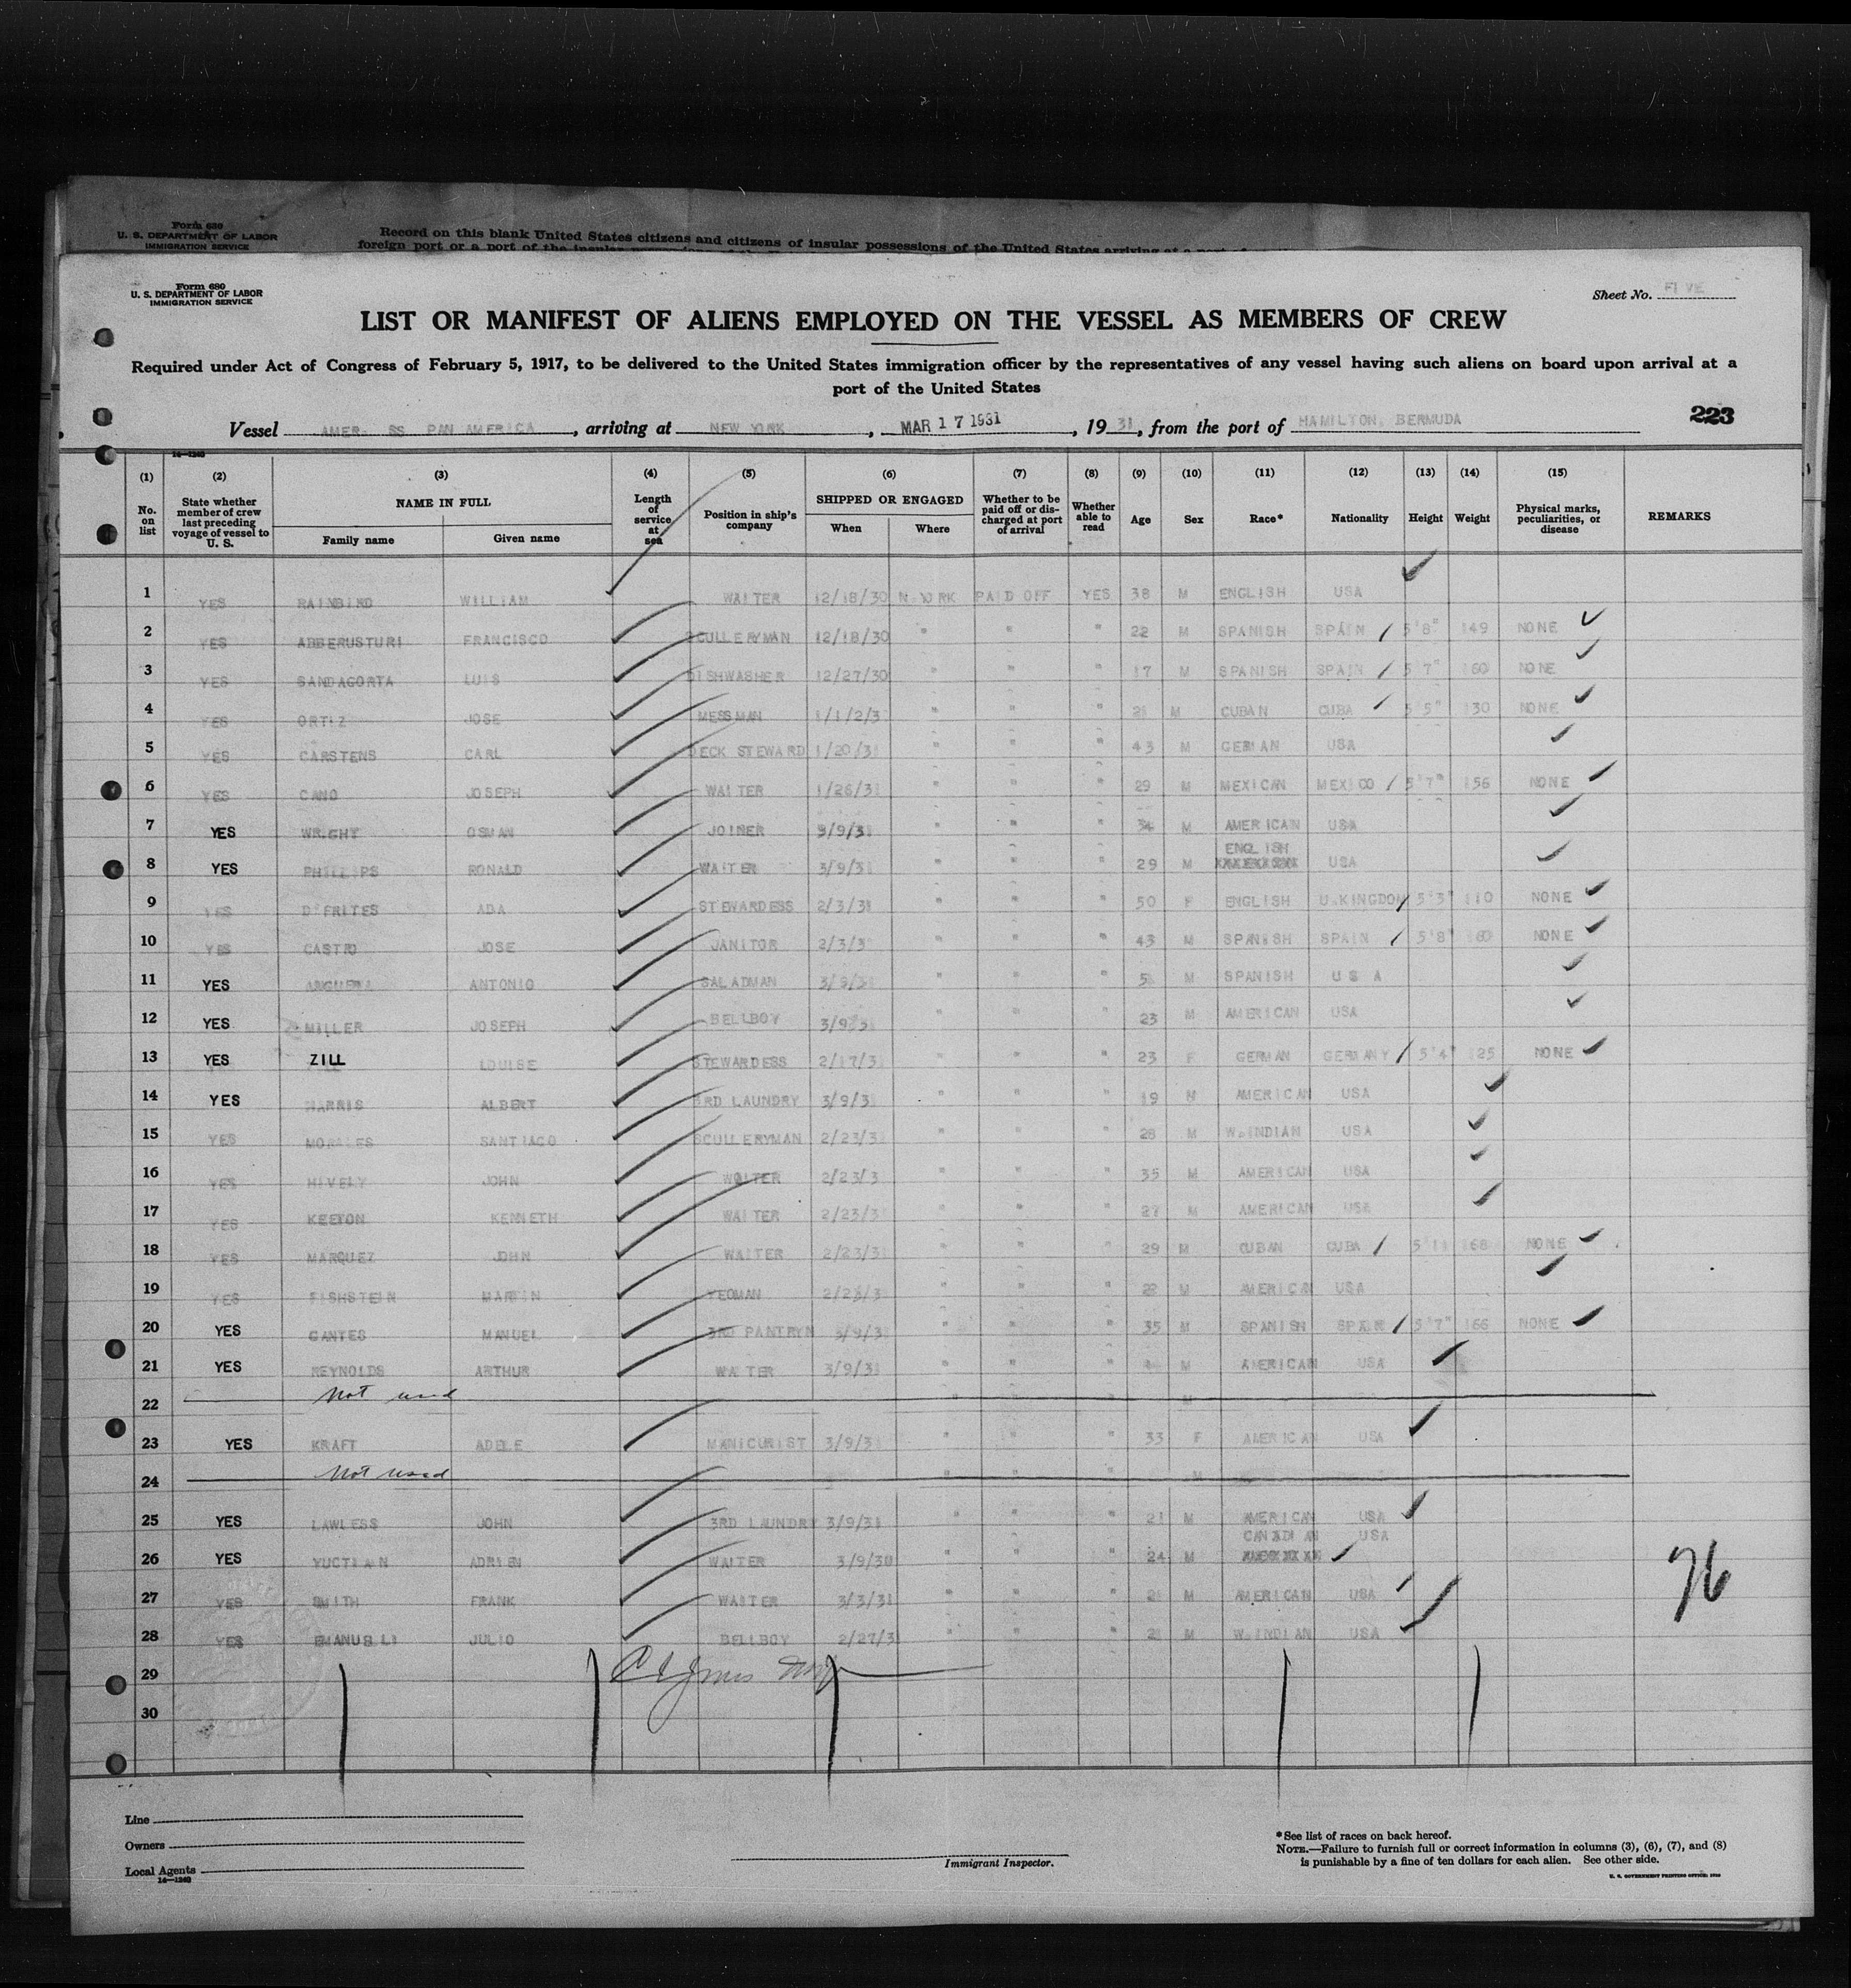 Form 680
U. S. DEPARTMENT OF LABOR
IMMIGRATION SERVICE
Record on this blank United States citizens and citizens of insular possessions of the United States arriving at a port of
foreign port or a port of the insular
Form 680
U. S. DEPARTMENT OF LABOR
IMMIGRATION SERVICE
Sheet No. FIVE
LIST OR MANIFEST OF ALIENS EMPLOYED ON THE VESSEL AS MEMBERS OF CREW
Required under Act of Congress of February 5, 1917, to be delivered to the United States immigration officer by the representatives of any vessel having such aliens on board upon arrival at a
port of the United States
223
Vessel AMER. SS PAN AMERICA, arriving at NEW YORK, MAR 17 1931, 1931, from the port of HAMILTON, BERMUDA
14—1240
(1) (2) (3) (4) (5) (6) (7) (8) (9) (10) (11) (12) (13) (14) (15)
No. on list State whether member of crew last preceding voyage of vessel to U. S. NAME IN FULL Family name Given name Length of service at sea Position in ship's company SHIPPED OR ENGAGED When Where Whether to be paid off or discharged at port of arrival Whether able to read Age Sex Race* Nationality Height Weight Physical marks, peculiarities, or disease REMARKS
1 YES RAINBIRD WILLIAM WAITER 12/18/30 N.YORK PAID OFF YES 38 M ENGLISH USA
2 YES ABBERUSTURI FRANCISCO SCULLERYMAN 12/18/30 " " " 22 M SPANISH SPAIN 5'8" 149 NONE
3 YES SANDAGORTA LUIS DISHWASHER 12/27/30 " " " 17 M SPANISH SPAIN 5'7" 160 NONE
4 YES ORTIZ JOSE MESSMAN 1/1/2/3 " " " 21 M CUBAN CUBA 5'5" 130 NONE
5 YES CARSTENS CARL DECK STEWARD 1/20/31 " " " 43 M GERMAN USA
6 YES CANO JOSEPH WAITER 1/26/31 " " " 29 M MEXICAN MEXICO 5'7" 156 NONE
7 YES WRIGHT OSMAN JOINER 3/9/31 " " " 34 M AMERICAN USA
8 YES PHILLIPS RONALD WAITER 3/9/31 " " " 29 M ENGLISH USA
9 YES D'FRITES ADA STEWARDESS 2/3/31 " " " 50 F ENGLISH U.KINGDOM 5'3" 110 NONE
10 YES CASTRO JOSE JANITOR 2/3/3 " " " 43 M SPANISH SPAIN 5'8" 160 NONE
11 YES ANGUERA ANTONIO SALADMAN 3/9/31 " " " M SPANISH U S A
12 YES MILLER JOSEPH BELLBOY 3/9/3 " " " 23 M AMERICAN USA
13 YES ZILL LOUISE STEWARDESS 2/17/31 " " " 23 F GERMAN GERMANY 5'4" 125 NONE
14 YES HARRIS ALBERT 3RD LAUNDRY 3/9/31 " " " 19 M AMERICAN USA
15 YES MORALES SANTIAGO SCULLERYMAN 2/23/31 " " " 28 M W.INDIAN USA
16 YES HIVELY JOHN WAITER 2/23/3 " " " 35 M AMERICAN USA
17 YES KEETON KENNETH WAITER 2/23/3 " " " 27 M AMERICAN USA
18 YES MARQUEZ JOHN WAITER 2/23/31 " " " 29 M CUBAN CUBA 5'11 168 NONE
19 YES FISHSTEIN MARTIN YEOMAN 2/23/3 " " " 22 M AMERICAN USA
20 YES GANTES MANUEL 3RD PANTRYM 3/9/31 " " " 35 M SPANISH SPAIN 5'7" 166 NONE
21 YES REYNOLDS ARTHUR WAITER 3/9/31 " " " M AMERICAN USA
22 Not used " " " M
23 YES KRAFT ADELE MANICURIST 3/9/31 " " " 33 F AMERICAN USA
24 Not used " " " M
25 YES LAWLESS JOHN 3RD LAUNDRY 3/9/31 " " " 21 M AMERICAN USA
26 YES ADRIEN WAITER 3/9/30 " " " 24 M CANADIAN USA
27 YES SMITH FRANK WAITER 3/3/31 " " " 21 M AMERICAN USA
76
28 YES EMANUELLI JULIO BELLBOY 2/27/31 " " " 21 M W.INDIAN USA
29
30
Line
Owners
Local Agents
14—1240
Immigrant Inspector.
*See list of races on back hereof.
NOTE.—Failure to furnish full or correct information in columns (3), (6), (7), and (8)
is punishable by a fine of ten dollars for each alien. See other side.
U. S. GOVERNMENT PRINTING OFFICE: 1930